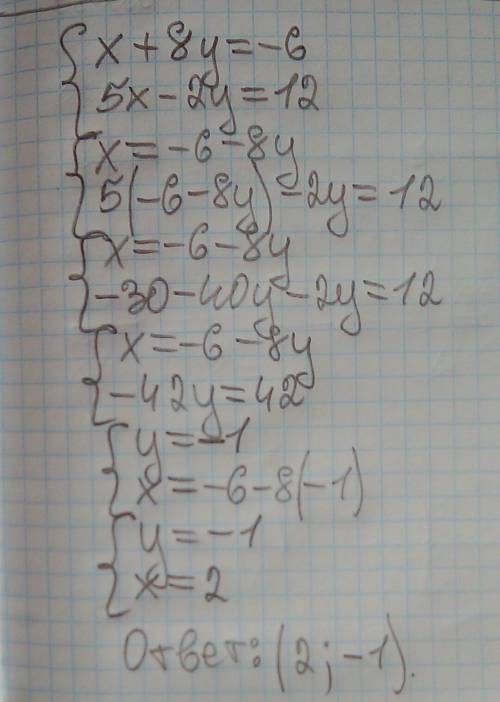 x + 8y = -6
5x - 2y = 12
x = -6 - 8y
5(-6 - 8y) - 2y = 12
x = -6 - 8y
-30 - 40y - 2y = 12
x = -6 - 8y
-42y = 42
y = -1
x = -6 - 8(-1)
y = -1
x = 2
Ответ: (2; -1).